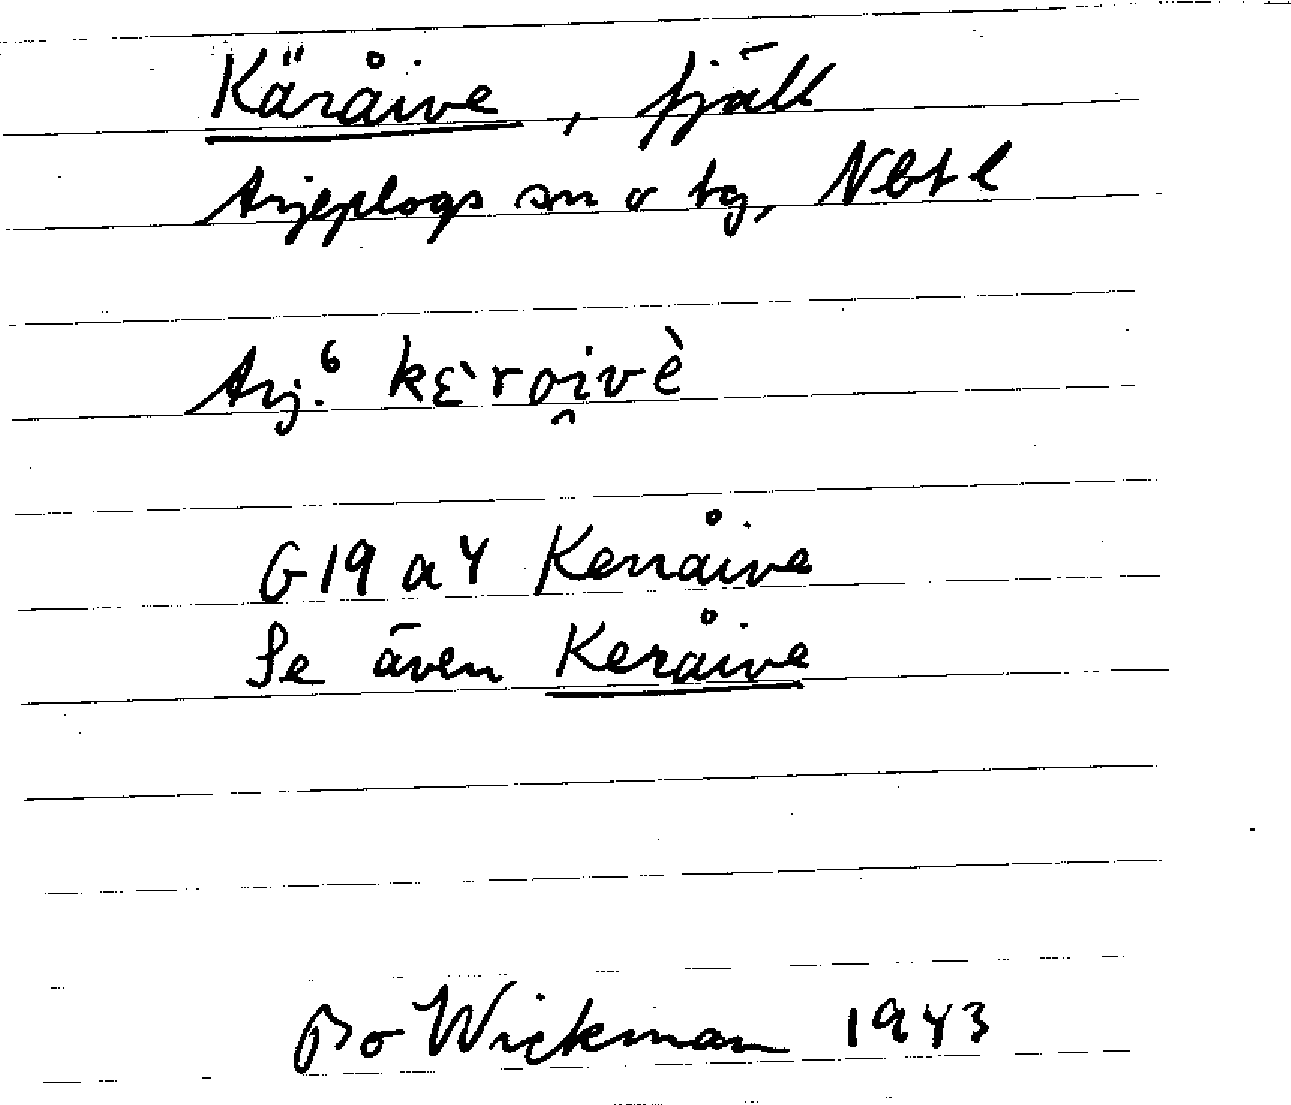 Käråive, fjäll
Arjeplogs sn o tg, Nbtl
Arj.⁶ kɛ̀ro̯ivè
G19 a4 Kerråive
Se även Keråive
Bo Wickman 1943